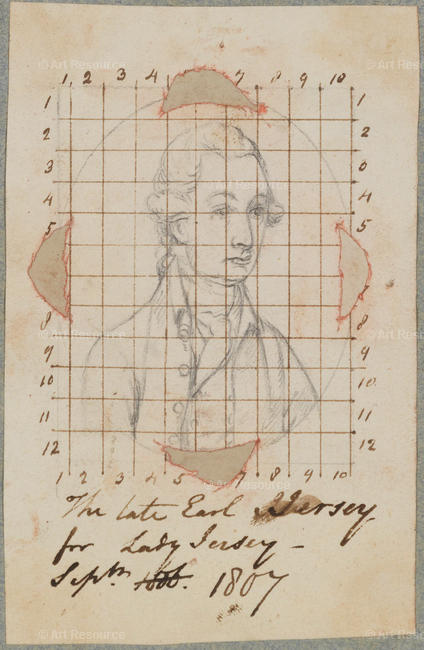 © Art Resource © Art Resource © Art Resource
1 2 3 4 7 8 9 10
1 1
2 2
3 0
4 4
5 5
8 8
9 9
10 10
11 11
12 12
1 2 3 4 5 7 8 9 10
The late Earl Jersey
for Lady Jersey –
Septr. 1807
© Art Resource © Art Resource © Art Resource